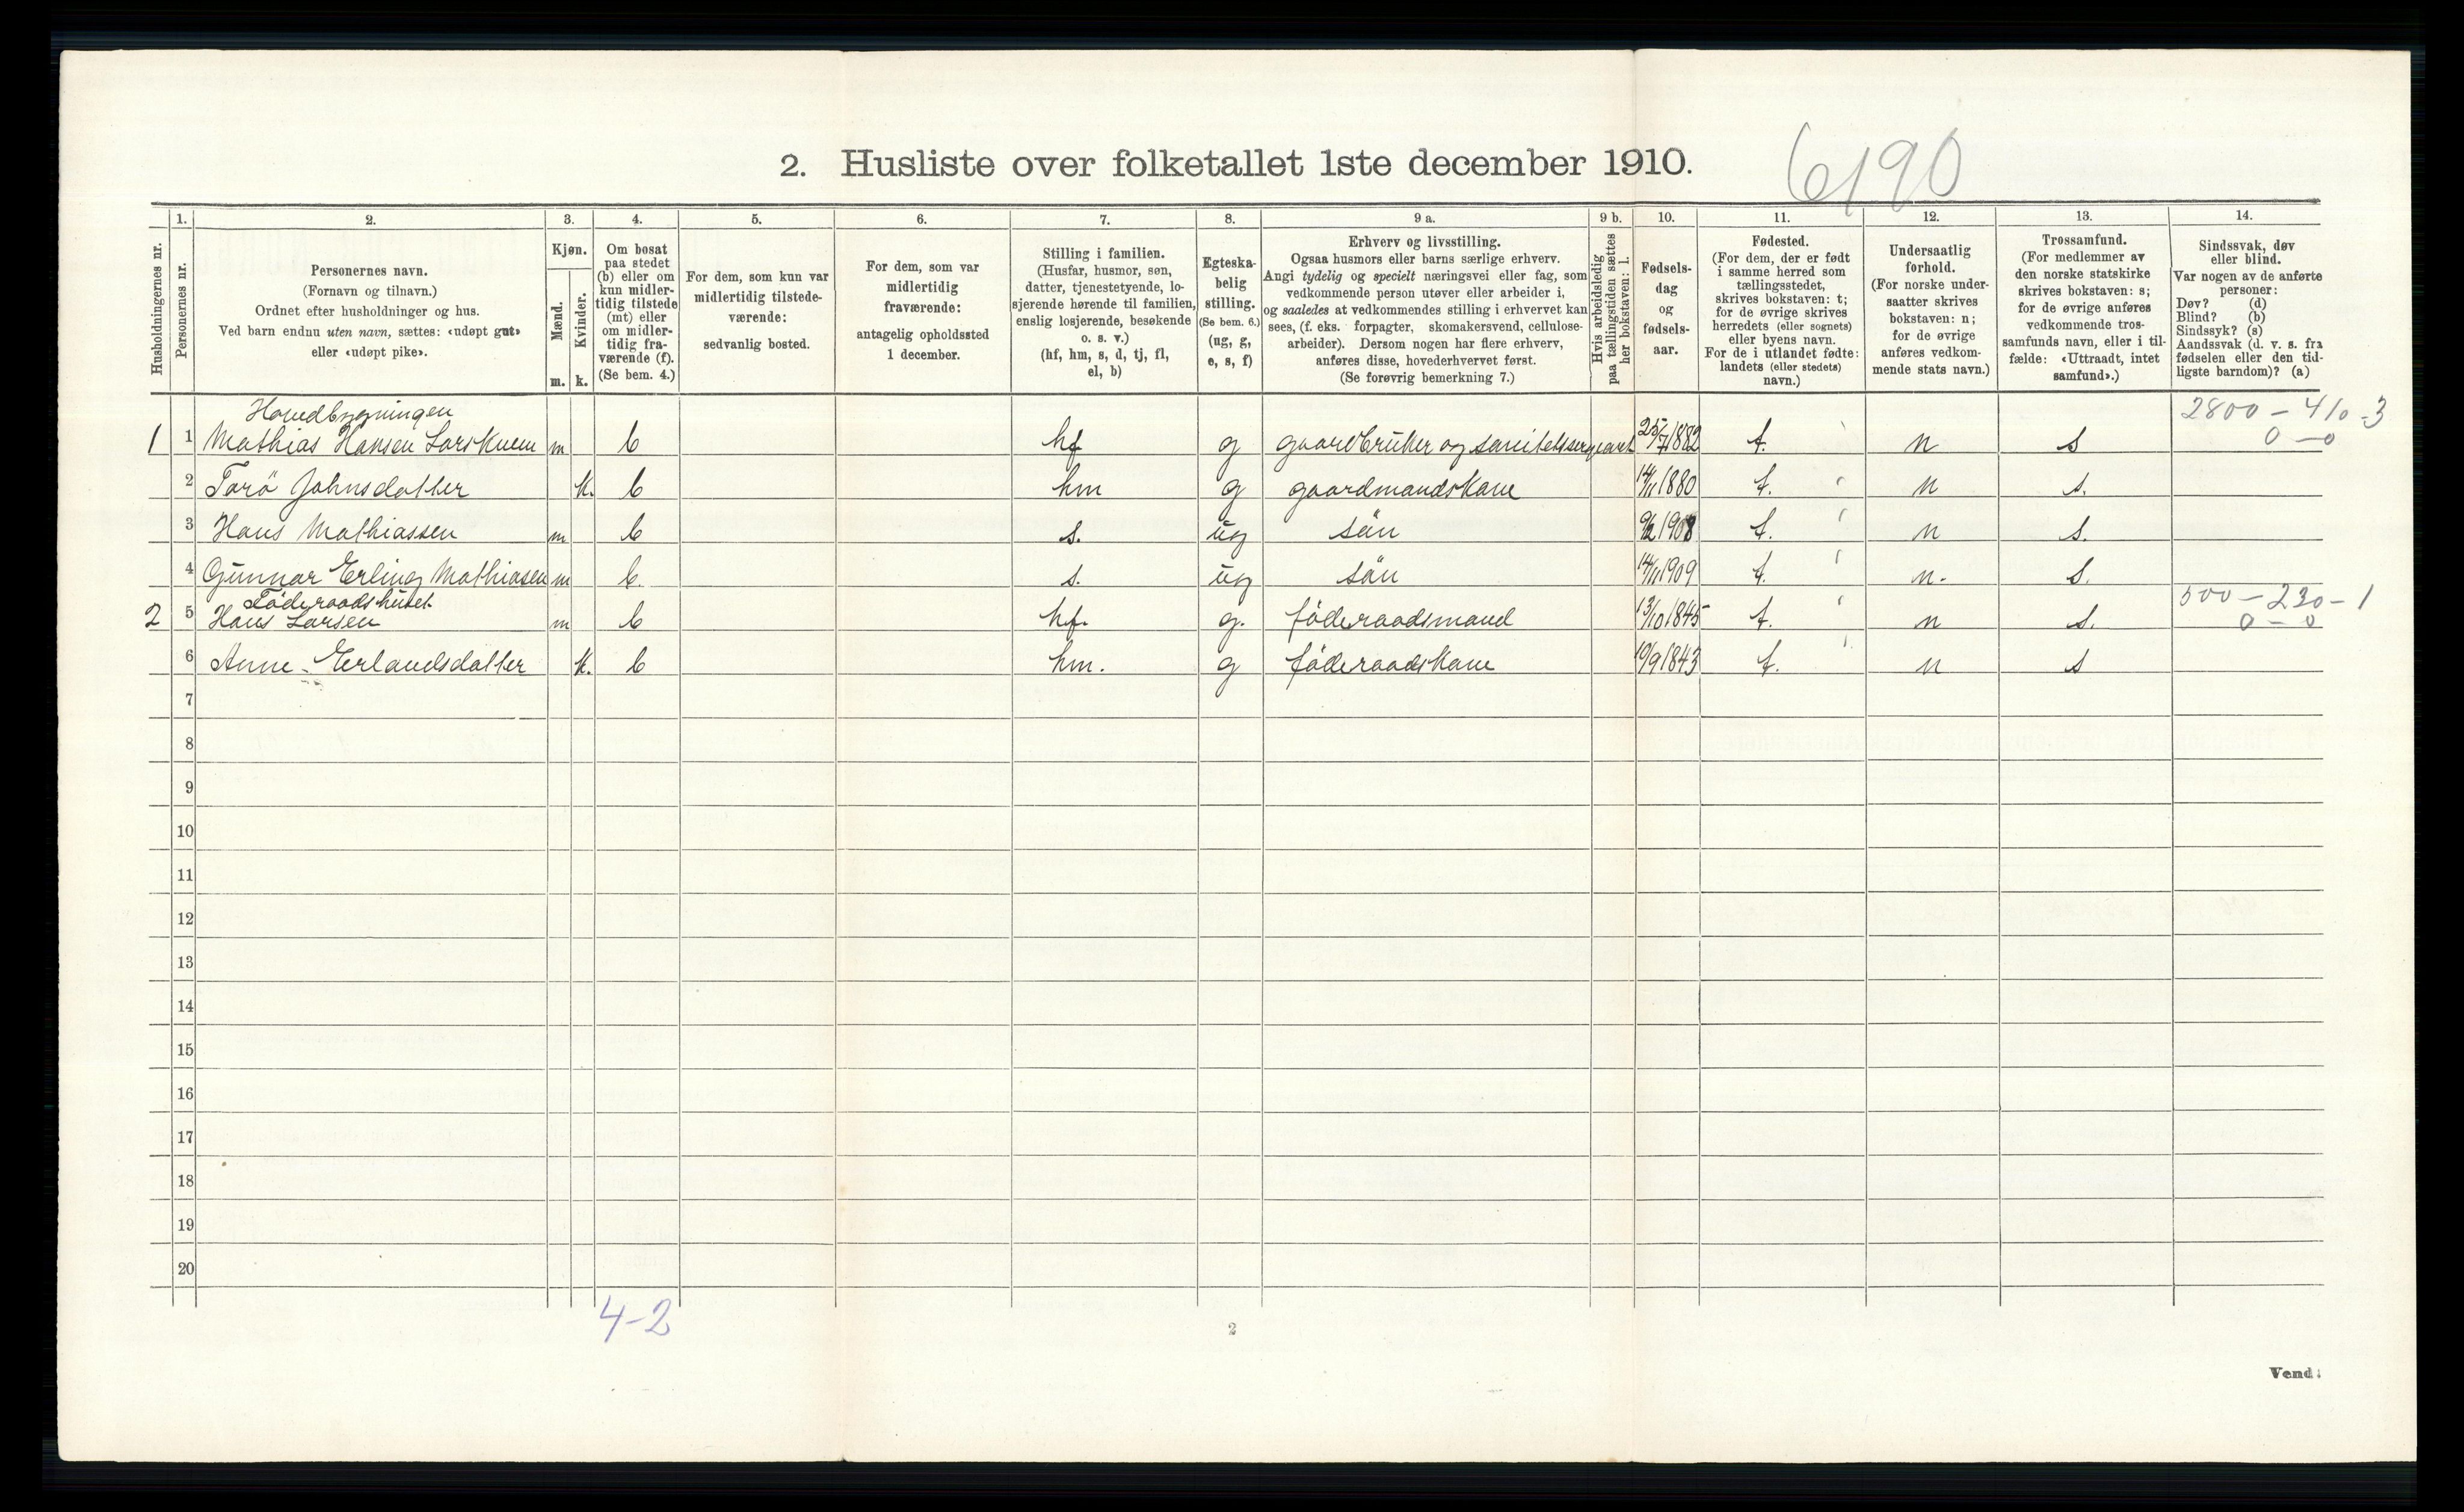 6190
2. Husliste over folketallet 1ste december 1910.
Husholdningernes nr.
1.
Personernes nr.
2.
Personernes navn.
(Fornavn og tilnavn.)
Ordnet efter husholdninger og hus.
Ved barn endnu uten navn, sættes: «udøpt gut»
eller «udøpt pike».
3.
Kjøn.
Mænd.
Kvinder.
m. k.
4.
Om bosat
paa stedet
(b) eller om
kun midler-
tidig tilstede
(mt) eller
om midler-
tidig fra-
værende (f).
(Se bem. 4.)
5.
For dem, som kun var
midlertidig tilstede-
værende:
sedvanlig bosted.
6.
For dem, som var
midlertidig
fraværende:
antagelig opholdssted
1 december.
7.
Stilling i familien.
(Husfar, husmor, søn,
datter, tjenestetyende, lo-
sjerende hørende til familien,
enslig losjerende, besøkende
o. s. v.)
(hf, hm, s, d, tj, fl,
el, b)
8.
Egteska-
belig
stilling.
(Se bem. 6.)
(ug, g,
e, s, f)
9 a.
Erhverv og livsstilling.
Ogsaa husmors eller barns særlige erhverv.
Angi tydelig og specielt næringsvei eller fag, som
vedkommende person utøver eller arbeider i,
og saaledes at vedkommendes stilling i erhvervet kan
sees, (f. eks. forpagter, skomakersvend, cellulose-
arbeider). Dersom nogen har flere erhverv,
anføres disse, hovederhvervet først.
(Se forøvrig bemerkning 7.)
9 b.
Hvis arbeidsledig
paa tællingstiden sættes
her bokstaven: l.
10.
Fødsels-
dag
og
fødsels-
aar.
11.
Fødested.
(For dem, der er født
i samme herred som
tællingsstedet,
skrives bokstaven: t;
for de øvrige skrives
herredets (eller sognets)
eller byens navn.
For de i utlandet fødte:
landets (eller stedets)
navn.)
12.
Undersaatlig
forhold.
(For norske under-
saatter skrives
bokstaven: n;
for de øvrige
anføres vedkom-
mende stats navn.)
13.
Trossamfund.
(For medlemmer av
den norske statskirke
skrives bokstaven: s;
for de øvrige anføres
vedkommende tros-
samfunds navn, eller i til-
fælde: «Uttraadt, intet
samfund».)
14.
Sindssvak, døv
eller blind.
Var nogen av de anførte
personer:
Døv? (d)
Blind? (b)
Sindssyk? (s)
Aandssvak (d. v. s. fra
fødselen eller den tid-
ligste barndom)? (a)
Hovedbygningen 2800 - 410 - 3
1 1 Mathias Hansen m b hf g gaardbruker og sanitetssergeant 25/7 1882 t. n s 0 - 0
2 Torö Johnsdatter k. b hm g gaardmandskone 14/11 1880 t. n s.
3 Hans Mathiassen m b s. ug sön 9/2 1908 t. n s.
4 Gunnar Erling Mathiasen m b. s. ug sön 14/11 1909 t. n. s.
Föderaadshuset 500 - 230 - 1
2 5 Hans Larsen m b hf. g. föderaadsmand 13/10 1845 t. n s. 0 - 0
6 Anne Erlandsdatter k. b hm. g föderaadskone 10/9 1843 t. n s
7
8
9
10
11
12
13
14
15
16
17
18
19
20
4-2
2
Vend!